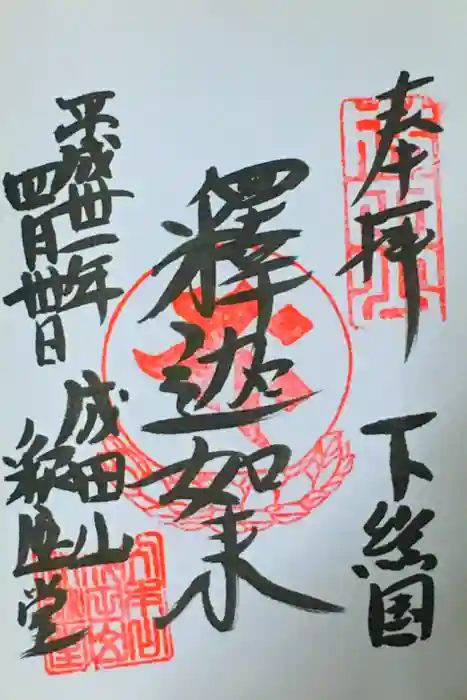 奉拝
下総国
釋迦如来
平成卅一年
四月卅日
成田山
釈迦堂